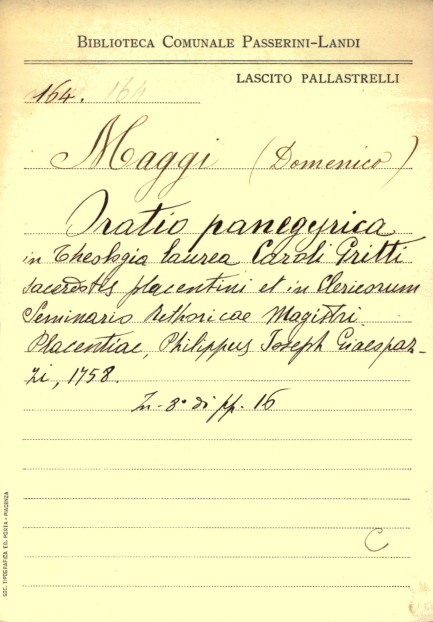 BIBLIOTECA COMUNALE PASSERINI-LANDI
LASCITO PALLASTRELLI
164. 164
Maggi (Domenico)
Oratio panegyrica
in Theologia laurea Caroli Gritti
sacerdotis placentini et in Clericorum
Seminario Rethoricae Magistri.
Placentiae, Philippus Joseph Giacopaz-
zi, 1758.
In-8° di pp. 16
C
SOC. TIPOGRAFICA ED. PORTA - PIACENZA